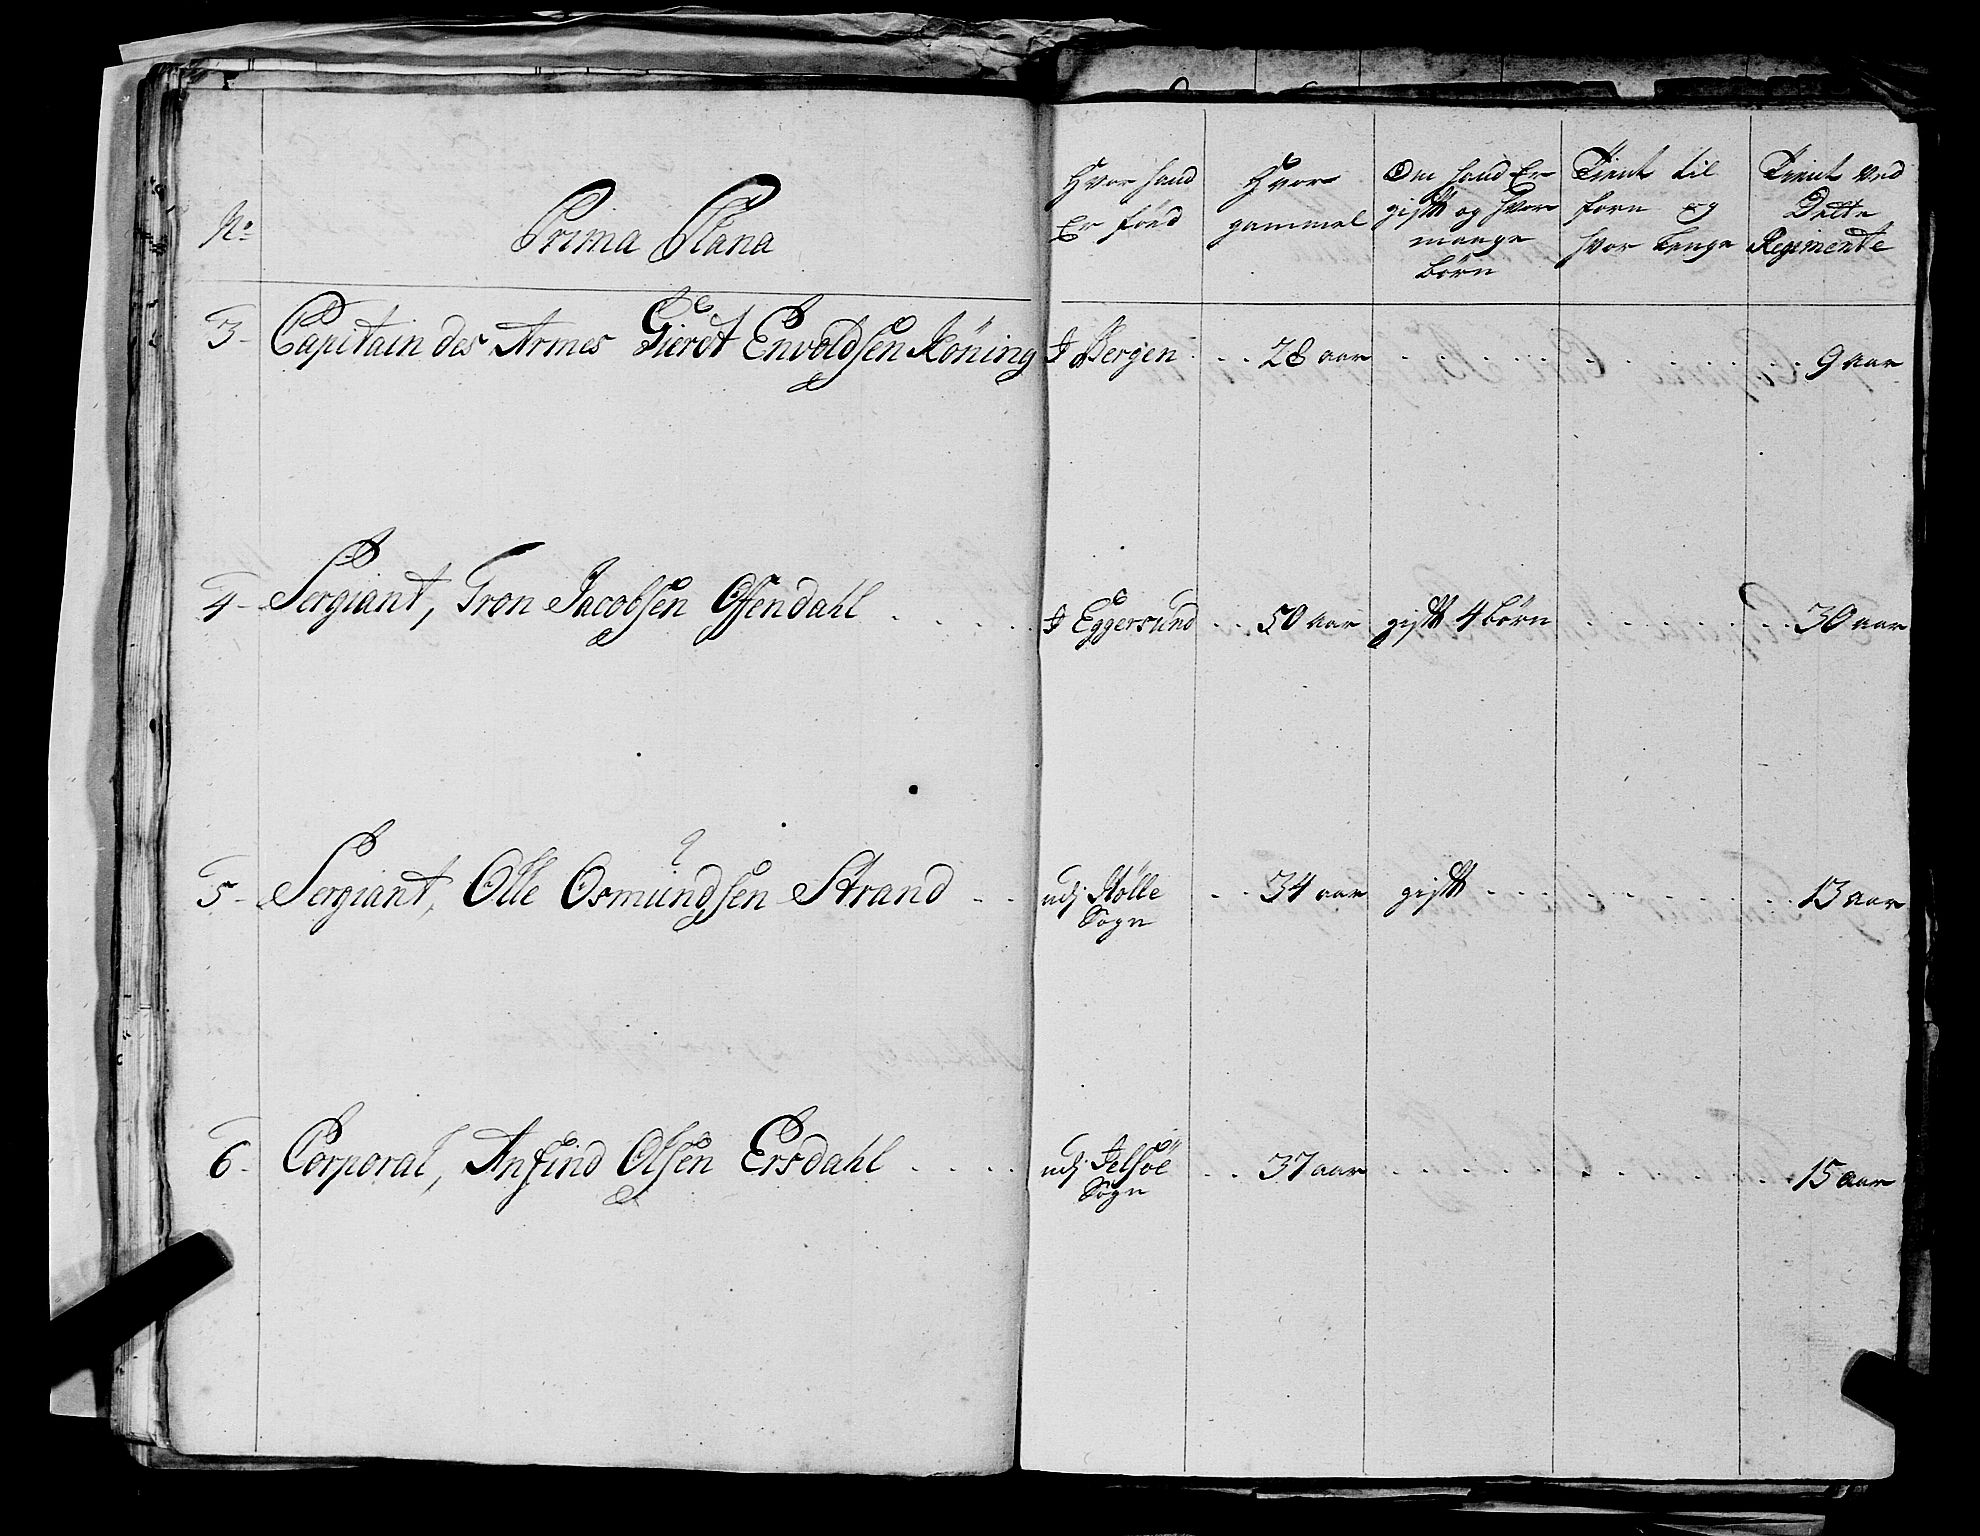 No
Prima Plana
Hvor hand
Er föed
Hvor
gammel
Om hand Er
gifft og hvor
mange
börn
Tient til
forn og
hvor Lenge
Tient ved
Dette
Regimente
3 Capitain des Armes Gierdt Envoldsen Köning J Bergen 28 aar 9 aar
4 Sergiant, Tron Jacobsen Offendahl J Eggersund 50 aar gifft 4 börn 30 aar
5 Sergiant, Olle Osmundsen Strand udj Stölle 34 aar gifft 13 aar
Sogn
6 Corporal, Anfind Olsen Ersdahl udj Jelsöe 37 aar 15 aar
Sogn